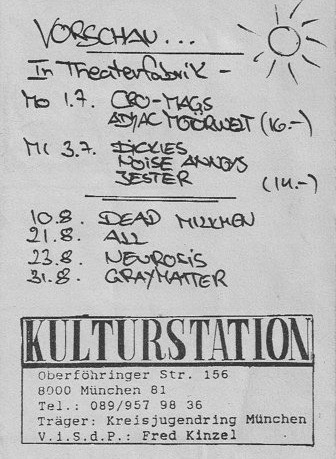 VORSCHAU...
In Theaterfabrik -
Mo 1.7. CRO-MAGS
AD/AC MOORWELT (16.-)
Mi 3.7. DICKIES
NOISE ANNOYS
JESTER (14.-)
10.8. DEAD MILKMEN
21.8. ALL
23.8. NEUROSIS
31.8. GRAYMATTER
KULTURSTATION
Oberföhringer Str. 156
8000 München 81
Tel.: 089/957 98 36
Träger: Kreisjugendring München
V.i.S.d.P.: Fred Kinzel